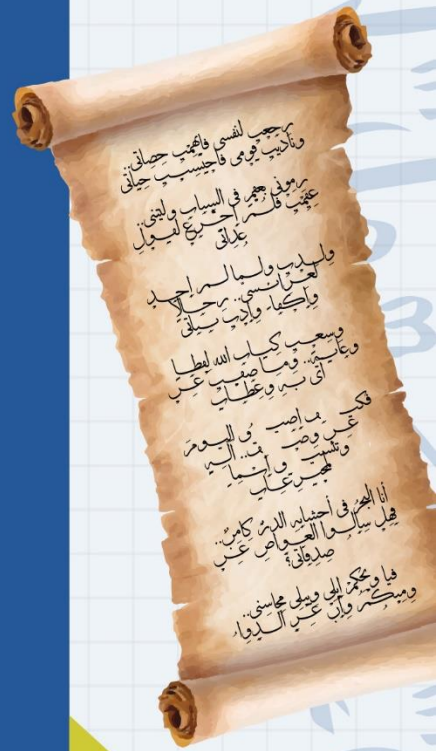 رجعت لنفسي فاتهمت حصاتي
وناديت قومي فاحتسبت حياتي
رموني بعقم في الشباب وليتني..
عقمت فلم أجزع لقول
عداتي
ولدت ولما لم أجد
لعرائسي.. رجالا
وأكفاء وأدت بناتي
وسعت كتاب الله لفظا
وغاية.. وما ضقت عن
آي به وعظات
فكيف أضيق اليوم
عن وصف آلة
وتنسيق
أنا البحر في أحشائه الدر كامن..
فهل سألوا الغواص عن
صدفاتي؟
فيا ويحكم أبلى وتبلى محاسني..
ومنكم وإن عز الدواء